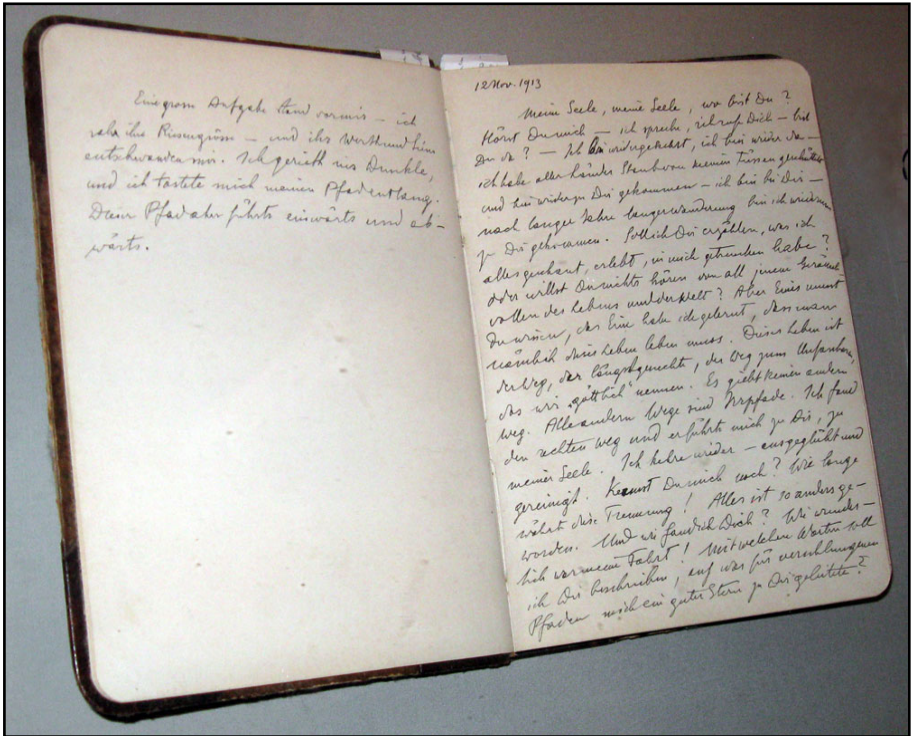 Eine grosse Aufgabe stand vor mir — ich
sah ihre Riesengrösse — und ihr Wert und Sinn
entschwanden mir. Ich gerieth ins Dunkle,
und ich tastete mich meinen Pfad entlang.
Dieser Pfad aber führte einwärts und ab-
wärts.
12 Nov. 1913
Meine Seele, meine Seele, wo bist Du?
Hörst Du mich — ich spreche, ich rufe Dich — bist
Du da? — Ich bin wiedergekehrt, ich bin wieder da —
ich habe aller Länder Staub von meinen Füssen geschüttelt
und bin wieder zu Dir gekommen — ich bin bei Dir —
nach langen Jahre langer Wanderung bin ich wieder
zu Dir gekommen. Soll ich Dir erzählen, was ich
alles geschaut, erlebt, in mich getrunken habe?
oder willst Du nichts hören von all jenem
vollen des Lebens und der Welt? Aber Eines musst
Du wissen, das Eine habe ich gelernt, dass man
nämlich dieses Leben leben muss. Dieses Leben ist
der Weg, der längst gesuchte, der Weg zum Unfassbaren,
das wir „göttlich“ nennen. Es giebt keinen andern
Weg. Alle andern Wege sind Irrpfade. Ich fand
den rechten Weg und er führte mich zu Dir, zu
meiner Seele. Ich kehre wieder — ausgeglüht und
gereinigt. Kennst Du mich noch? Wie lange
währte diese Trennung! Alles ist so anders ge-
worden. Und wie fand ich Dich? Wie wunder-
lich war meine Fahrt! Mit welchen Worten soll
ich Dir beschreiben, auf was für verschlungenen
Pfaden mich ein guter Stern zu Dir geleitete?